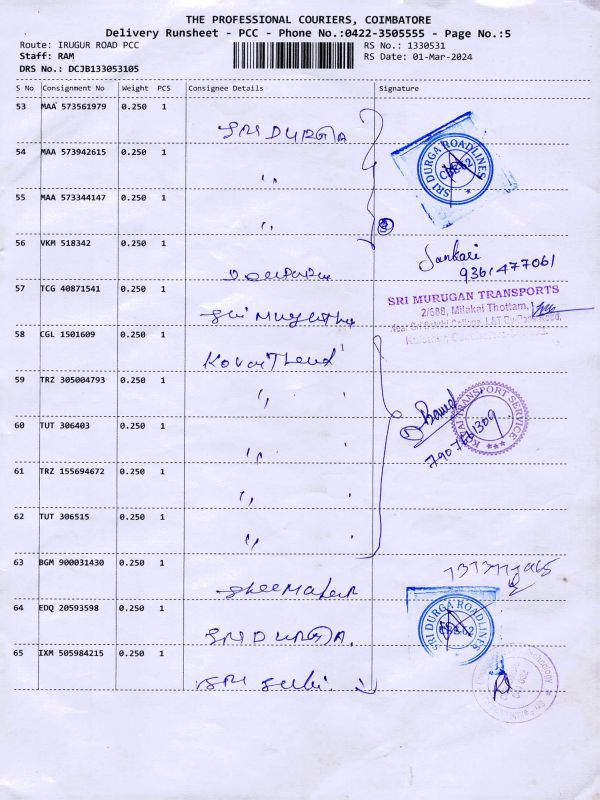 THE PROFESSIONAL COURIERS, COIMBATORE
Delivery Runsheet - PCC - Phone No.:0422-3505555 - Page No.:5
Route: IRUGUR ROAD PCC
RS No.: 1330531
Staff: RAM
RS Date: 01-Mar-2024
DRS No.: DCJB133053105
S No Consignment No Weight PCS Consignee Details Signature
53 MAA 573561979 0.250 1
SRI DURGA
54 MAA 573942615 0.250 1
SRI DURGA ROADLINES
CBE-62
"
55 MAA 573344147 0.250 1
"
3
56 VKM 518342 0.250 1
Sankari
9361477061
57 TCG 40871541 0.250 1
Sri Murugan
SRI MURUGAN TRANSPORTS
2/688, Milakai Thottam,
58 CGL 1501609 0.250 1
Kovai
59 TRZ 305004793 0.250 1
"
KOVAI TRANSPORT SERVICE
60 TUT 306403 0.250 1
"
61 TRZ 155694672 0.250 1
"
62 TUT 306515 0.250 1
"
63 BGM 900031430 0.250 1
64 EDQ 20593598 0.250 1
SRI DURGA.
SRI DURGA ROADLINES
65 IXM 505984215 0.250 1
SRI